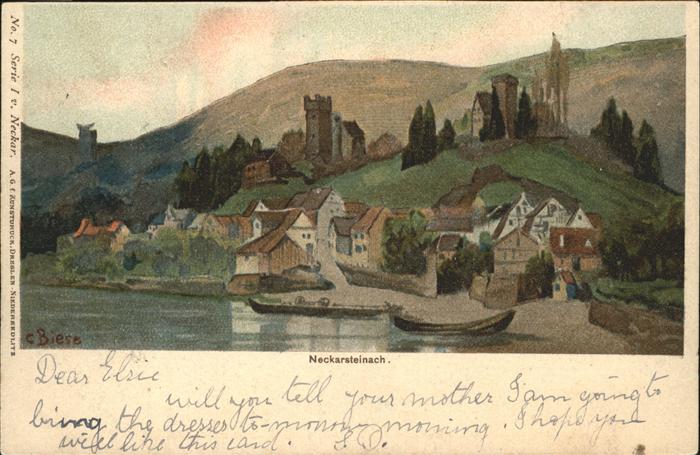 No. 7 Serie I v. Neckar. A.G. f. KUNSTDRUCK, DRESDEN-NIEDERSEDLITZ
C Biese
Neckarsteinach.
Dear Elsie
will you tell your mother I am going to
bring the dresses to-morrow morning. I hope you
will like this card.